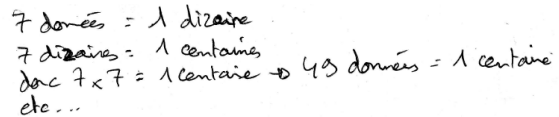 7 données = 1 dizaine
7 dizaines = 1 centaines
donc 7 x 7 = 1 centaine → 49 données = 1 centaine
etc...